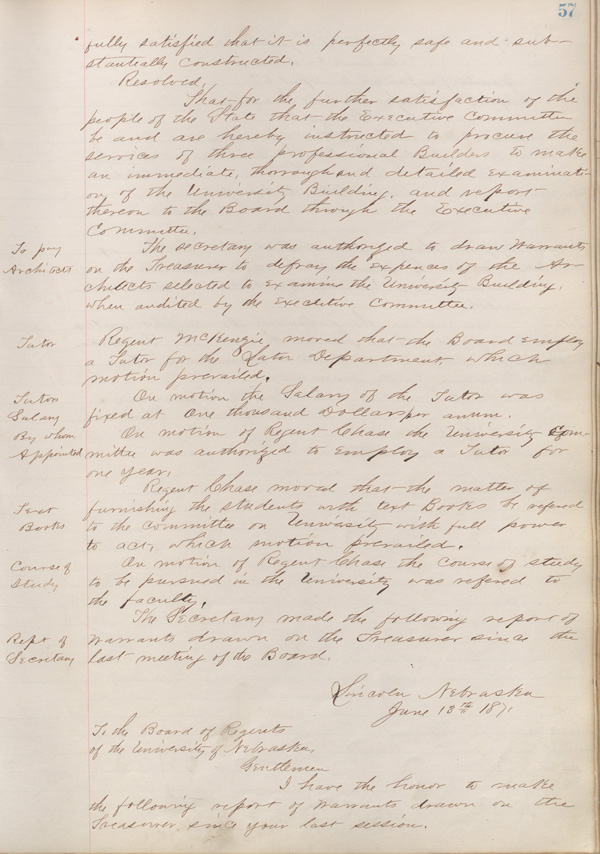 57
fully satisfied that it is perfectly safe and sub-
stantially constructed.
Resolved,
That for the further satisfaction of the
people of the State that the Executive Committee
be and are hereby instructed to procure the
services of three professional Builders to make
an immediate, thorough and detailed examinat-
ion of the University Building, and report
thereon to the Board through the Executive
Committee.
To pay
Architects
The secretary was authorized to draw Warrants
on the Treasurer to defray the Expences of the Ar-
chitects selected to Examine the University Building,
when audited by the Executive Committee.
Tutor
Regent McKenzie moved that the Board Employ
a Tutor for the Latin Department, which
motion prevailed.
Tutors
Salary
On motion the Salary of the Tutor was
fixed at One thousand Dollars per anum.
By whom
Appointed
On motion of Regent Chase the University Com-
mittee was authorized to Employ a Tutor for
one year.
Text
Books
Regent Chase moved that the matter of
furnishing the students with text Books be refered
to the Committee on University with full power
to act, which motion prevailed.
Course of
Study
On motion of Regent Chase the course of study
to be pursued in the University was refered to
the faculty.
Rept of
Secretary
The Secretary made the following report of
Warrants drawn on the Treasurer since the
last meeting of the Board.
Lincoln Nebraska
June 13th 1871
To the Board of Regents
of the University of Nebraska,
Gentlemen
I have the honor to make
the following report of Warrants drawn on the
Treasurer, since your last session.